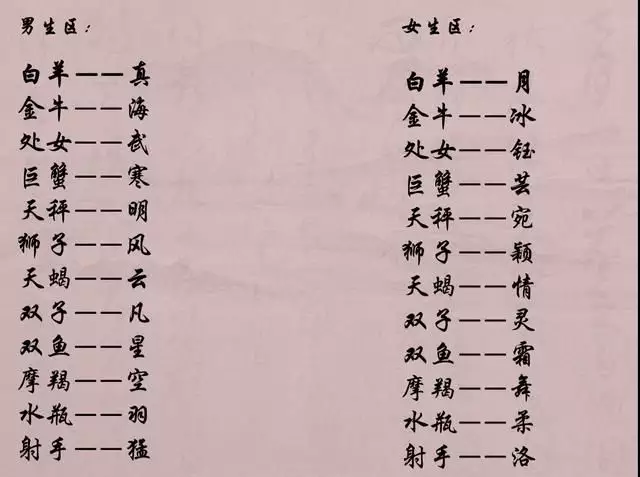 男生区：
白羊——真
金牛——海
处女——武
巨蟹——寒
天秤——明
狮子——风
天蝎——云
双子——凡
双鱼——星
摩羯——空
水瓶——羽
射手——猛
女生区：
白羊——月
金牛——冰
处女——钰
巨蟹——芸
天秤——宛
狮子——颖
天蝎——情
双子——灵
双鱼——霜
摩羯——舞
水瓶——柔
射手——洛